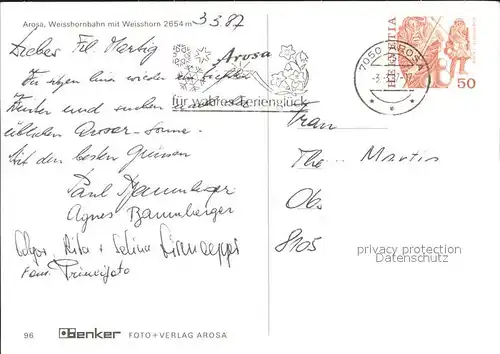 Arosa, Weisshornbahn mit Weisshorn 2654 m
3.3.87
Lieber Frl. Mertig
Wir
hier wieder
Winter und suchen
üblichen Aroser-Sonne.
Mit den besten Grüssen
Paul Baumberger
Agnes Baumberger
Rita + Selina
Fam. Principato
Arosa
für wahres Ferienglück
7050 AROSA
HELVETIA
50
Frau
The... Martis
Ob.
8105
privacy protection
Datenschutz
96 Benker FOTO + VERLAG AROSA